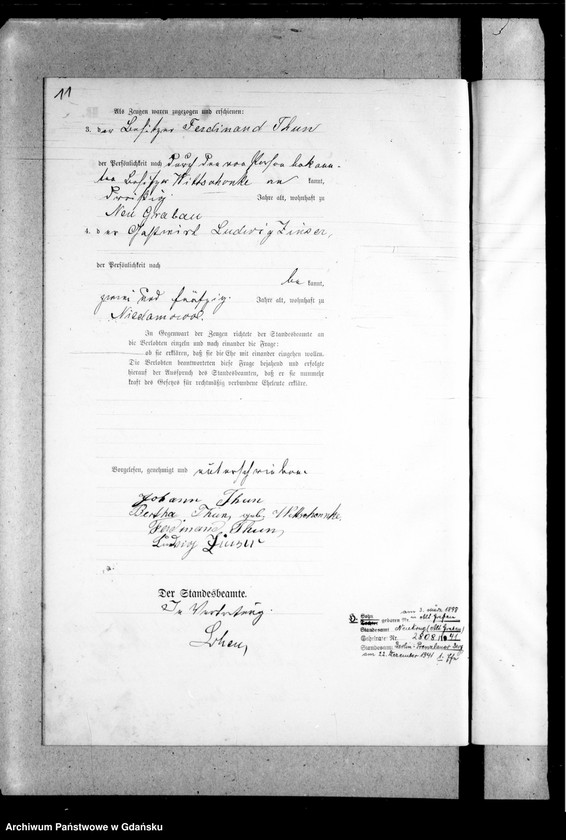 11
Als Zeugen waren zugezogen und erschienen:
3. der Besitzer Ferdinand Thun
der Persönlichkeit nach durch den von Person bekann-
ten Besitzer Wittschonke an kannt,
dreißig Jahre alt, wohnhaft zu
Neu Grabau
4. der Gastwirt Ludwig Zinser,
der Persönlichkeit nach
be kannt,
zwei und fünfzig Jahre alt, wohnhaft zu
Niedamowo.
In Gegenwart der Zeugen richtete der Standesbeamte an
die Verlobten einzeln und nach einander die Frage:
ob sie erklären, daß sie die Ehe mit einander eingehen wollen.
Die Verlobten beantworteten diese Frage bejahend und erfolgte
hierauf der Ausspruch des Standesbeamten, daß er sie nunmehr
kraft des Gesetzes für rechtmäßig verbundene Eheleute erkläre.
Vorgelesen, genehmigt und unterschrieben.
Johann Thun
Bertha Thun, geb. Wittschonke,
Ferdinand Thun,
Ludwig Zinser
Der Standesbeamte.
In Vertretung.
Sohn am 2. März 1899
Tochter geboren in Alt Grabau
Standesamt: Neukrug (Alt Grabau)
Heirats Nr. 2808 / 41
Standesamt: Berlin-Prenzlauer Berg
am 22. November 1941
Archiwum Państwowe w Gdańsku